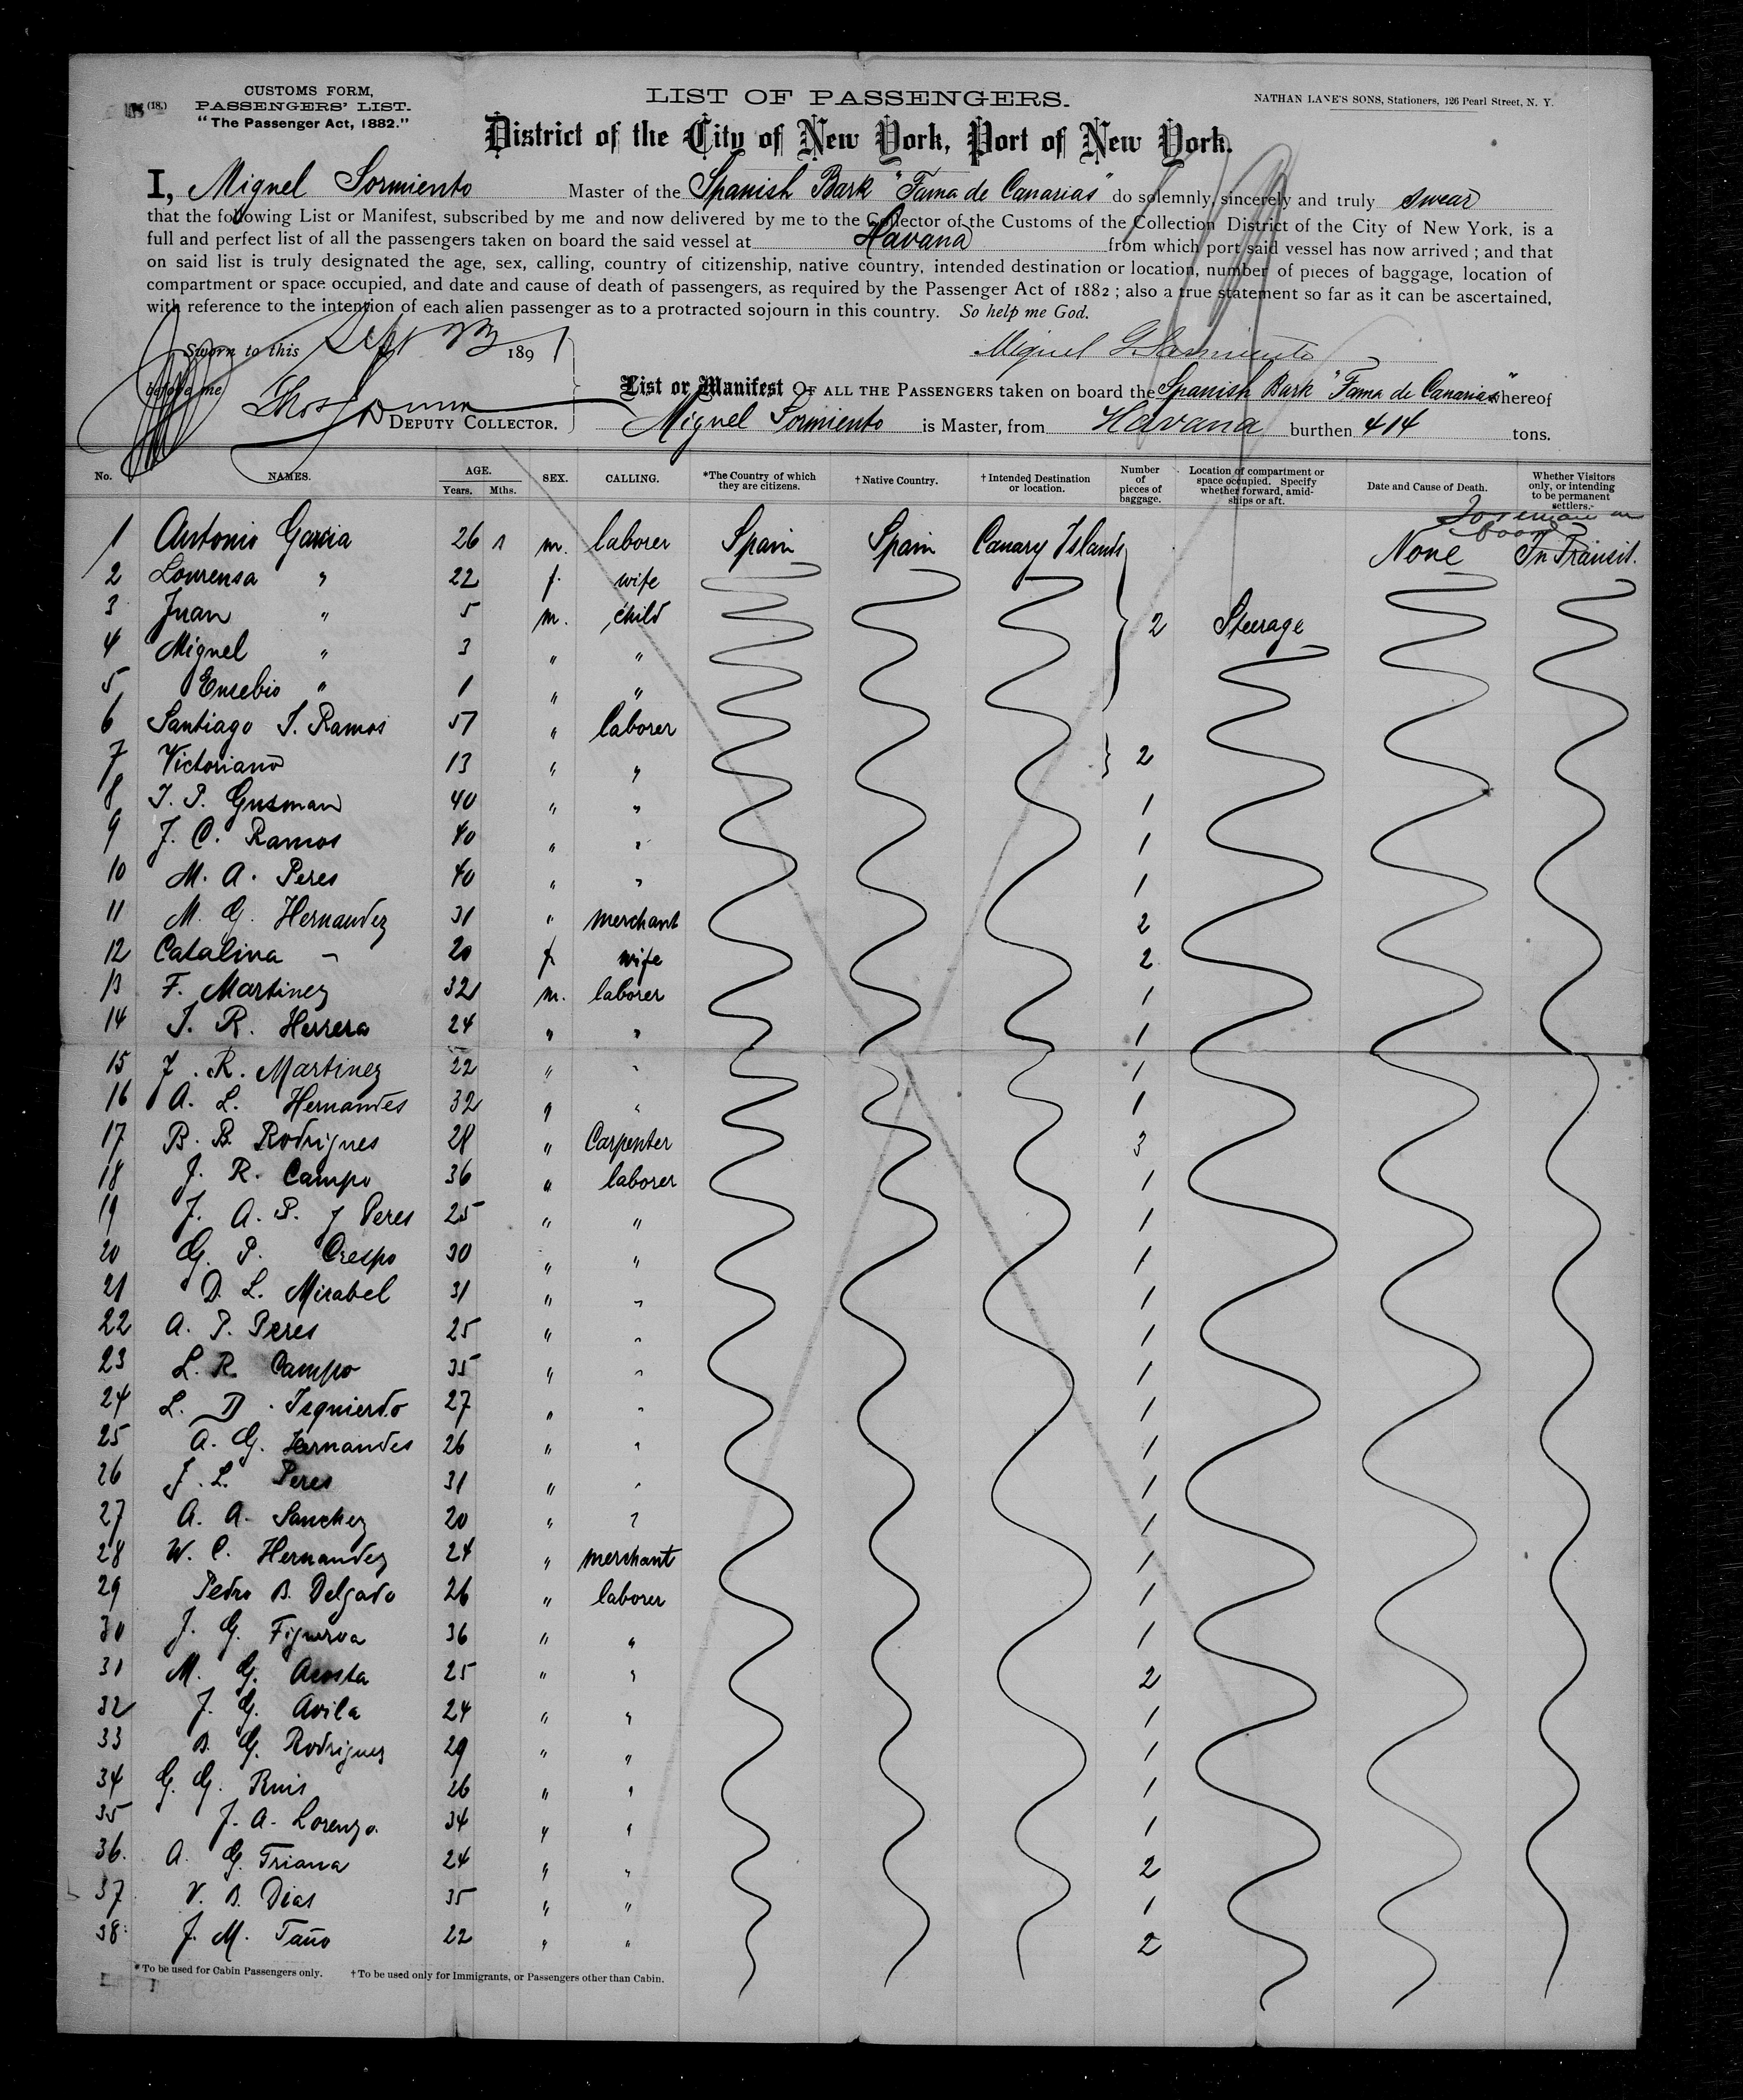 (18.)
CUSTOMS FORM,
PASSENGERS' LIST.
"The Passenger Act, 1882."
LIST OF PASSENGERS.
NATHAN LANE'S SONS, Stationers, 126 Pearl Street, N. Y.
District of the City of New York, Port of New York.
I, Miguel Sormiento Master of the Spanish Bark "Fama de Canarias" do solemnly, sincerely and truly swear
that the following List or Manifest, subscribed by me and now delivered by me to the Collector of the Customs of the Collection District of the City of New York, is a
full and perfect list of all the passengers taken on board the said vessel at Havana from which port said vessel has now arrived; and that
on said list is truly designated the age, sex, calling, country of citizenship, native country, intended destination or location, number of pieces of baggage, location of
compartment or space occupied, and date and cause of death of passengers, as required by the Passenger Act of 1882; also a true statement so far as it can be ascertained,
with reference to the intention of each alien passenger as to a protracted sojourn in this country. So help me God.
Sworn to this Sept 1891
Miguel G. Sarmiento
before me
Thos Dunn DEPUTY COLLECTOR.
List or Manifest OF ALL THE PASSENGERS taken on board the Spanish Bark "Fama de Canarias" whereof
Miguel Sormiento is Master, from Havana burthen 414 tons.
No. NAMES. AGE. Years. Mths. SEX. CALLING. *The Country of which they are citizens. †Native Country. †Intended Destination or location. Number of pieces of baggage. Location of compartment or space occupied. Specify whether forward, amidships or aft. Date and Cause of Death. Whether Visitors only, or intending to be permanent settlers.
1 Antonio Garcia 26 m. laborer Spain Spain Canary Islands None In Transit.
2 Lourensa " 22 f. wife
3 Juan " 5 m. child 2 Steerage
4 Miguel " 3 " "
5 Eusebio " 1 " "
6 Santiago S. Ramos 57 " laborer
7 Victoriano 13 " " 2
8 T. P. Gusman 40 " " 1
9 J. C. Ramos 40 " " 1
10 M. A. Peres 40 " " 1
11 M. G. Hernandez 31 " merchant 2
12 Catalina - 20 f. wife 2
13 F. Martinez 32 m. laborer 1
14 J. R. Herrera 24 " " 1
15 J. R. Martinez 22 " " 1
16 A. L. Hernandes 32 " " 1
17 B. B. Rodrigues 28 " Carpenter 3
18 J. R. Campo 36 " laborer 1
19 J. A. P. y Peres 25 " " 1
20 G. P. Crespo 30 " " 1
21 D. L. Mirabel 31 " " 1
22 A. P. Peres 25 " " 1
23 L. R. Campo 35 " " 1
24 L. D. Isquierdo 27 " " 1
25 A. G. Hernandes 26 " " 1
26 J. L. Peres 31 " " 1
27 A. A. Sanchez 20 " " 1
28 W. C. Hernandez 24 " merchant 1
29 Pedro B. Delgado 26 " laborer 1
30 J. G. Figueroa 36 " " 1
31 M. G. Acosta 25 " " 2
32 J. G. Avila 24 " " 1
33 B. G. Rodriguez 29 " " 1
34 G. G. Ruis 26 " " 1
35 J. A. Lorenzo. 34 " " 1
36. A. G. Triana 24 " " 2
37 V. B. Dias 35 " " 1
38. J. M. Taño 22 " " 2
*To be used for Cabin Passengers only. †To be used only for Immigrants, or Passengers other than Cabin.